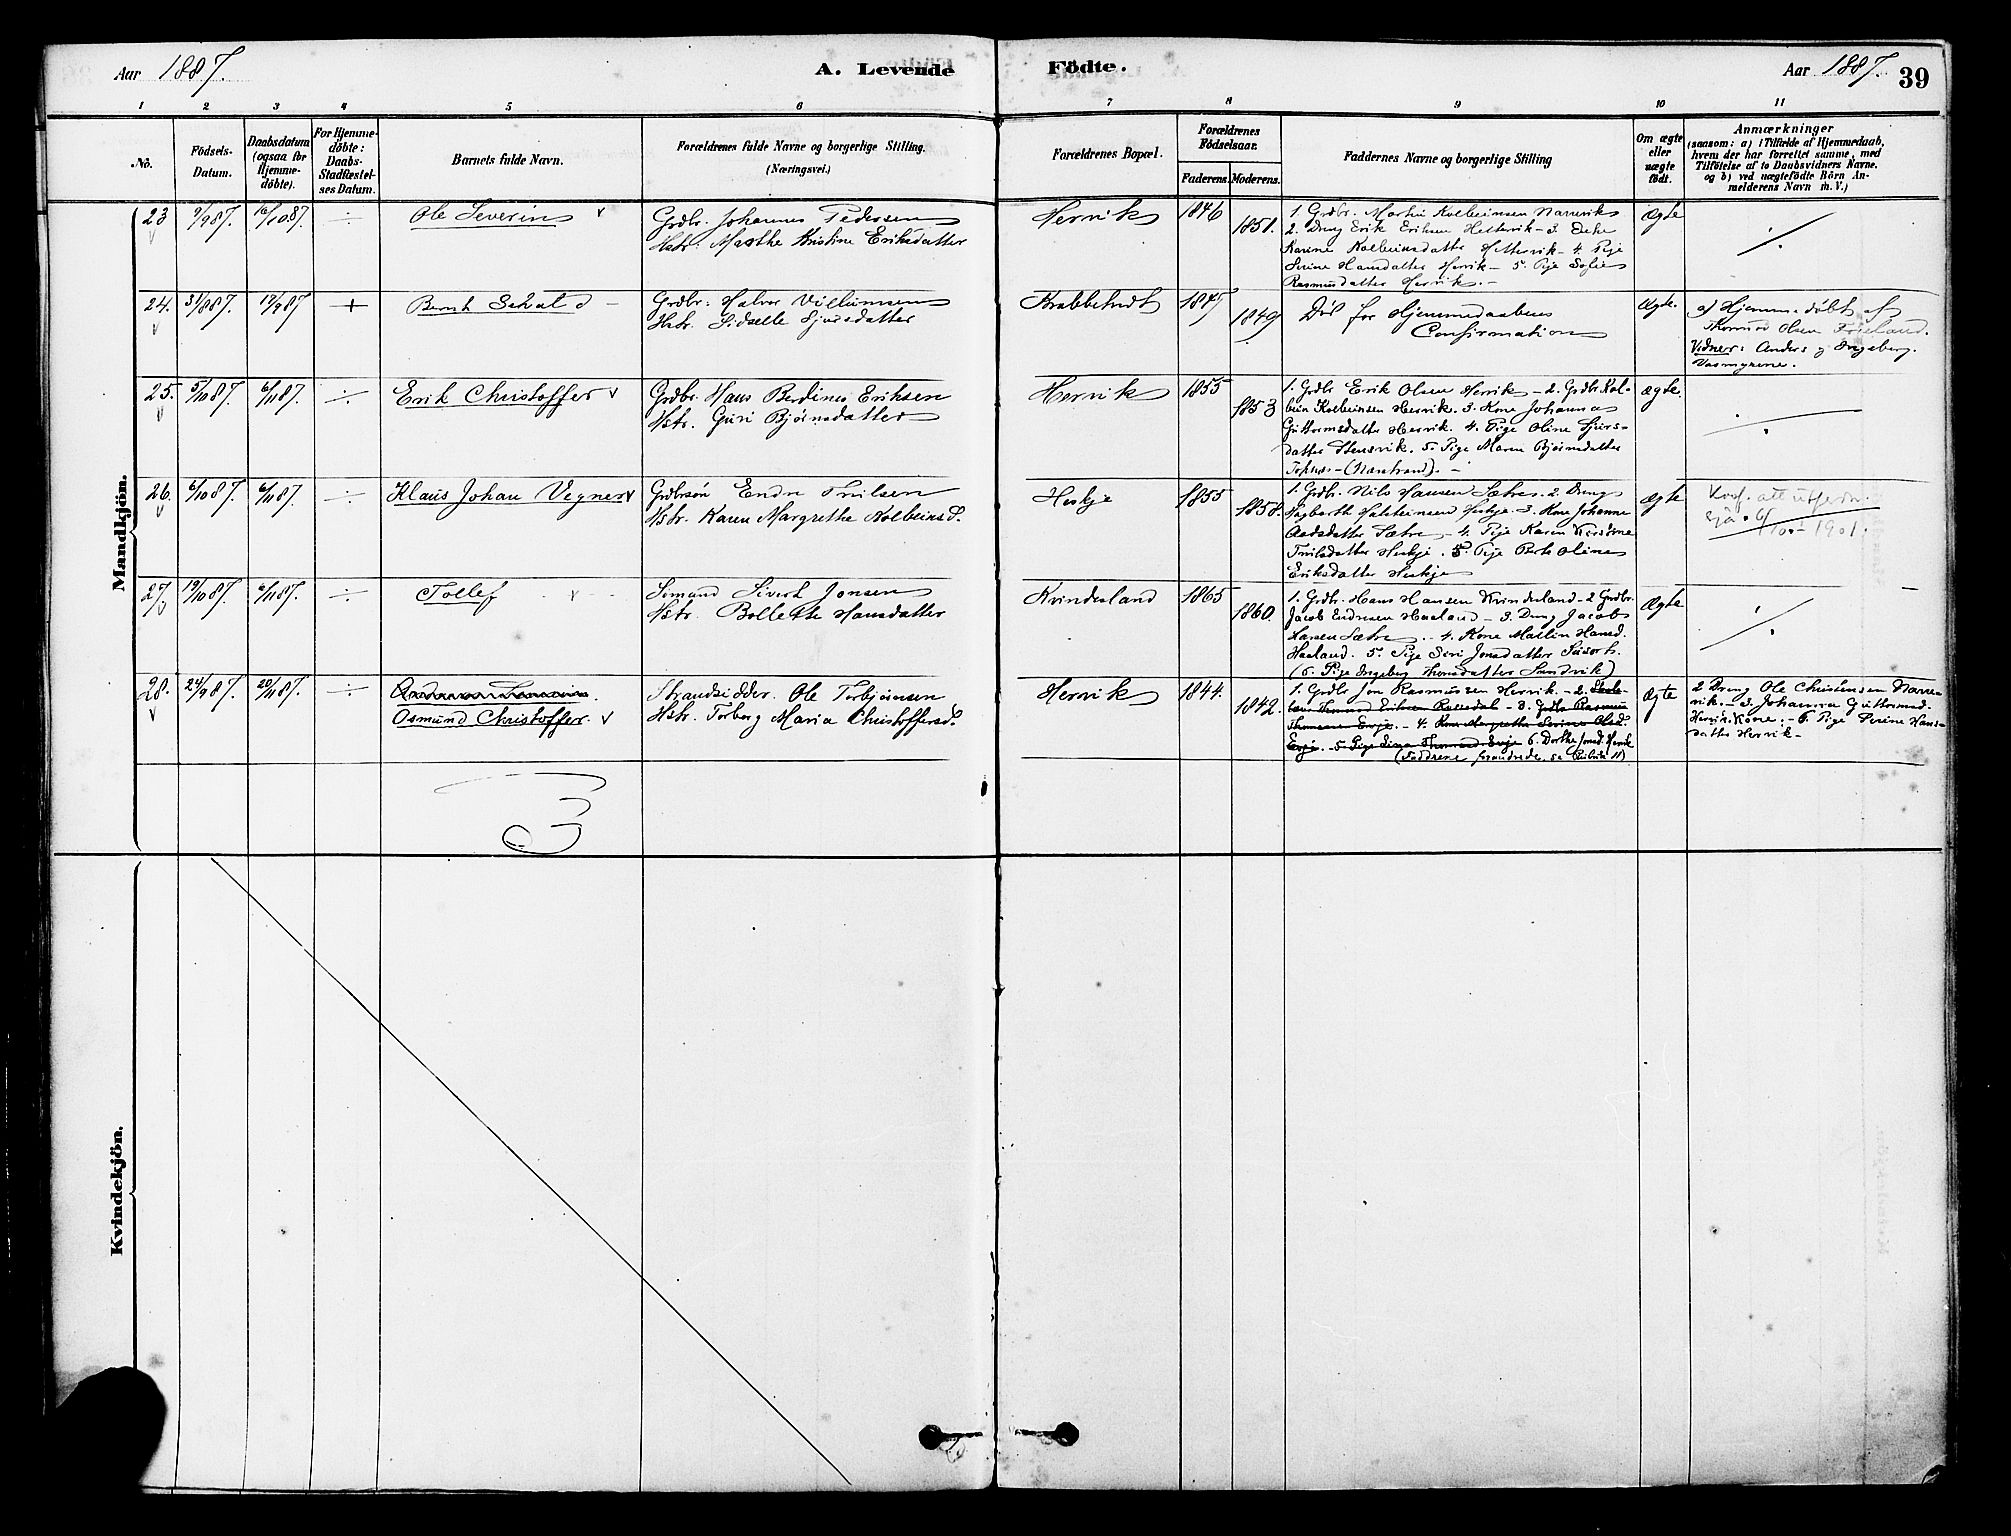 Aar 1887.
A. Levende Födte.
Aar 1887. 39
1 2 3 4 5 6 7 8 9 10 11
Nô.
Födsels-
Datum.
Daabsdatum
(ogsaa for
Hjemme-
döbte).
For Hjemme-
döbte:
Daabs-
Stadfæstel-
ses Datum.
Barnets fulde Navn.
Forældrenes fulde Navne og borgerlige Stilling.
(Næringsvei.)
Forældrenes Bopæl.
Forældrenes
Födselsaar.
Faderens. Moderens.
Faddernes Navne og borgerlige Stilling
Om ægte
eller
uægte
födt.
Anmærkninger
(saasom: a) i Tilfælde af Hjemmedaab,
hvem der har forrettet samme, med
Tilföielse af to Daabsvidners Navne.
og b) ved uægtefödte Börn An-
melderens Navn m. V.)
Mandkjön.
23 9/9 87. 16/10 87. ÷ Ole Severin v
Grdbr. Johannes Pedersen
Hstr. Marthe Kristine Eriksdatter
Hervik 1846 1851.
1. Grdbr. Martin Kolbeinsen Narrevik
2. Dreng Erik Eriksen Hettervik - 3. Enke
Karine Kolbeinsdatter Hettervik - 4. Pige
Serine Hansdatter Hervik - 5. Pige Sofie
Rasmusdatter Hervik. -
Ægte ÷
24. 31/8 87. 17/9 87 + Bernt Sevald -
Grdbr: Halvor Villumsen
Hstr. Sidselle Sjursdatter
Krabbetvedt 1847 1849
Död før Hjemmedaabens
Confirmation
Ægte.
a) Hjemmedöbt af
Thormod Olsen Frøland.
Vidner: Anders og Ingeborg.
25. 5/10 87. 6/11 87. ÷ Erik Christoffer v
Grdbr. Hans Berdines Eriksen
Hstr. Guri Bjørnsdatter
Hervik 1855 1853
1. Grdbr Erik Olsen Hervik - 2. Grdbr. Kol-
bein Kolbeinsen Hervik. 3. Kone Johanna
Guttormsdatter Hervik. 4. Pige Oline Sjurs-
datter Stensvik. 5. Pige Maren Bjørnsdatter
Topnes - (Nærstrand). -
Ægte. ÷
26. 6/10 87. 6/11 87. ÷ Klaus Johan Vegner v
Grdbrsön Endre Truilsen
Hstr. Karen Margrethe Kolbeinsd.
Heskje 1855 1858.
1. Grdbr. Nils Hansen Sætre. 2. Dreng
Hagbarth Halsteinsen Heskje - 3. Kone Johanne
Aadsdatter Sætre - 4. Pige Karen
Truilsdatter Heskje. 5. Pige Berte Oline
Eriksdatter Heskje
Ægte
Konf. att utferdn.
1901.
27 19/10 87. 6/11 87. ÷ Tollef v
Sömand Sivert Jonsen
Hstr. Bollette Hansdatter
Kvindesland 1865 1860.
1. Grdbr. Hans Hansen Kvindesland - 2 Grdbr.
Jacob Endresen Haaland - 3. Dreng Jacob
Hansen Sætre. - 4. Kone Mallin Hansd.
Haaland. 5. Pige Siri Jonsdatter
(6. Pige Ingeborg Thorsdatter Sundvik)
Ægte ÷
28. 24/9 87. 20/11 87. ÷
Osmund Christoffer. v
Strandsidder. Ole Torbjørnsen
Hstr. Torborg Maria Christoffersd.
Hervik 1844. 1842.
1. Grdbr Jon Rasmussen Hervik. - 2. Skole-
lærer Thomas Eriksen - 3. Grdbr Rasmus
Thomsen Evje. - 4. Kone Margrethe Serine Olsd.
Evje. - 5. Pige Lina Thomasd. Evje 6. Dorthe Jonsd. Hervik
(Faddrene forandrede, se Rubrik 11)
Ægte
2 Dreng Ole Christensen Narre-
vik. - 3. Johanna Guttormsd.
Hervik Kone. - 5. Pige Serine Hans-
datter Hervik -
Kvindekjön.